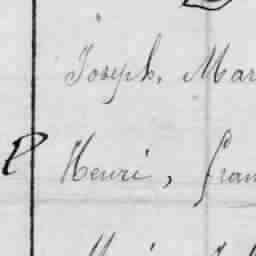 Joseph, Mar
P Henri, Fran